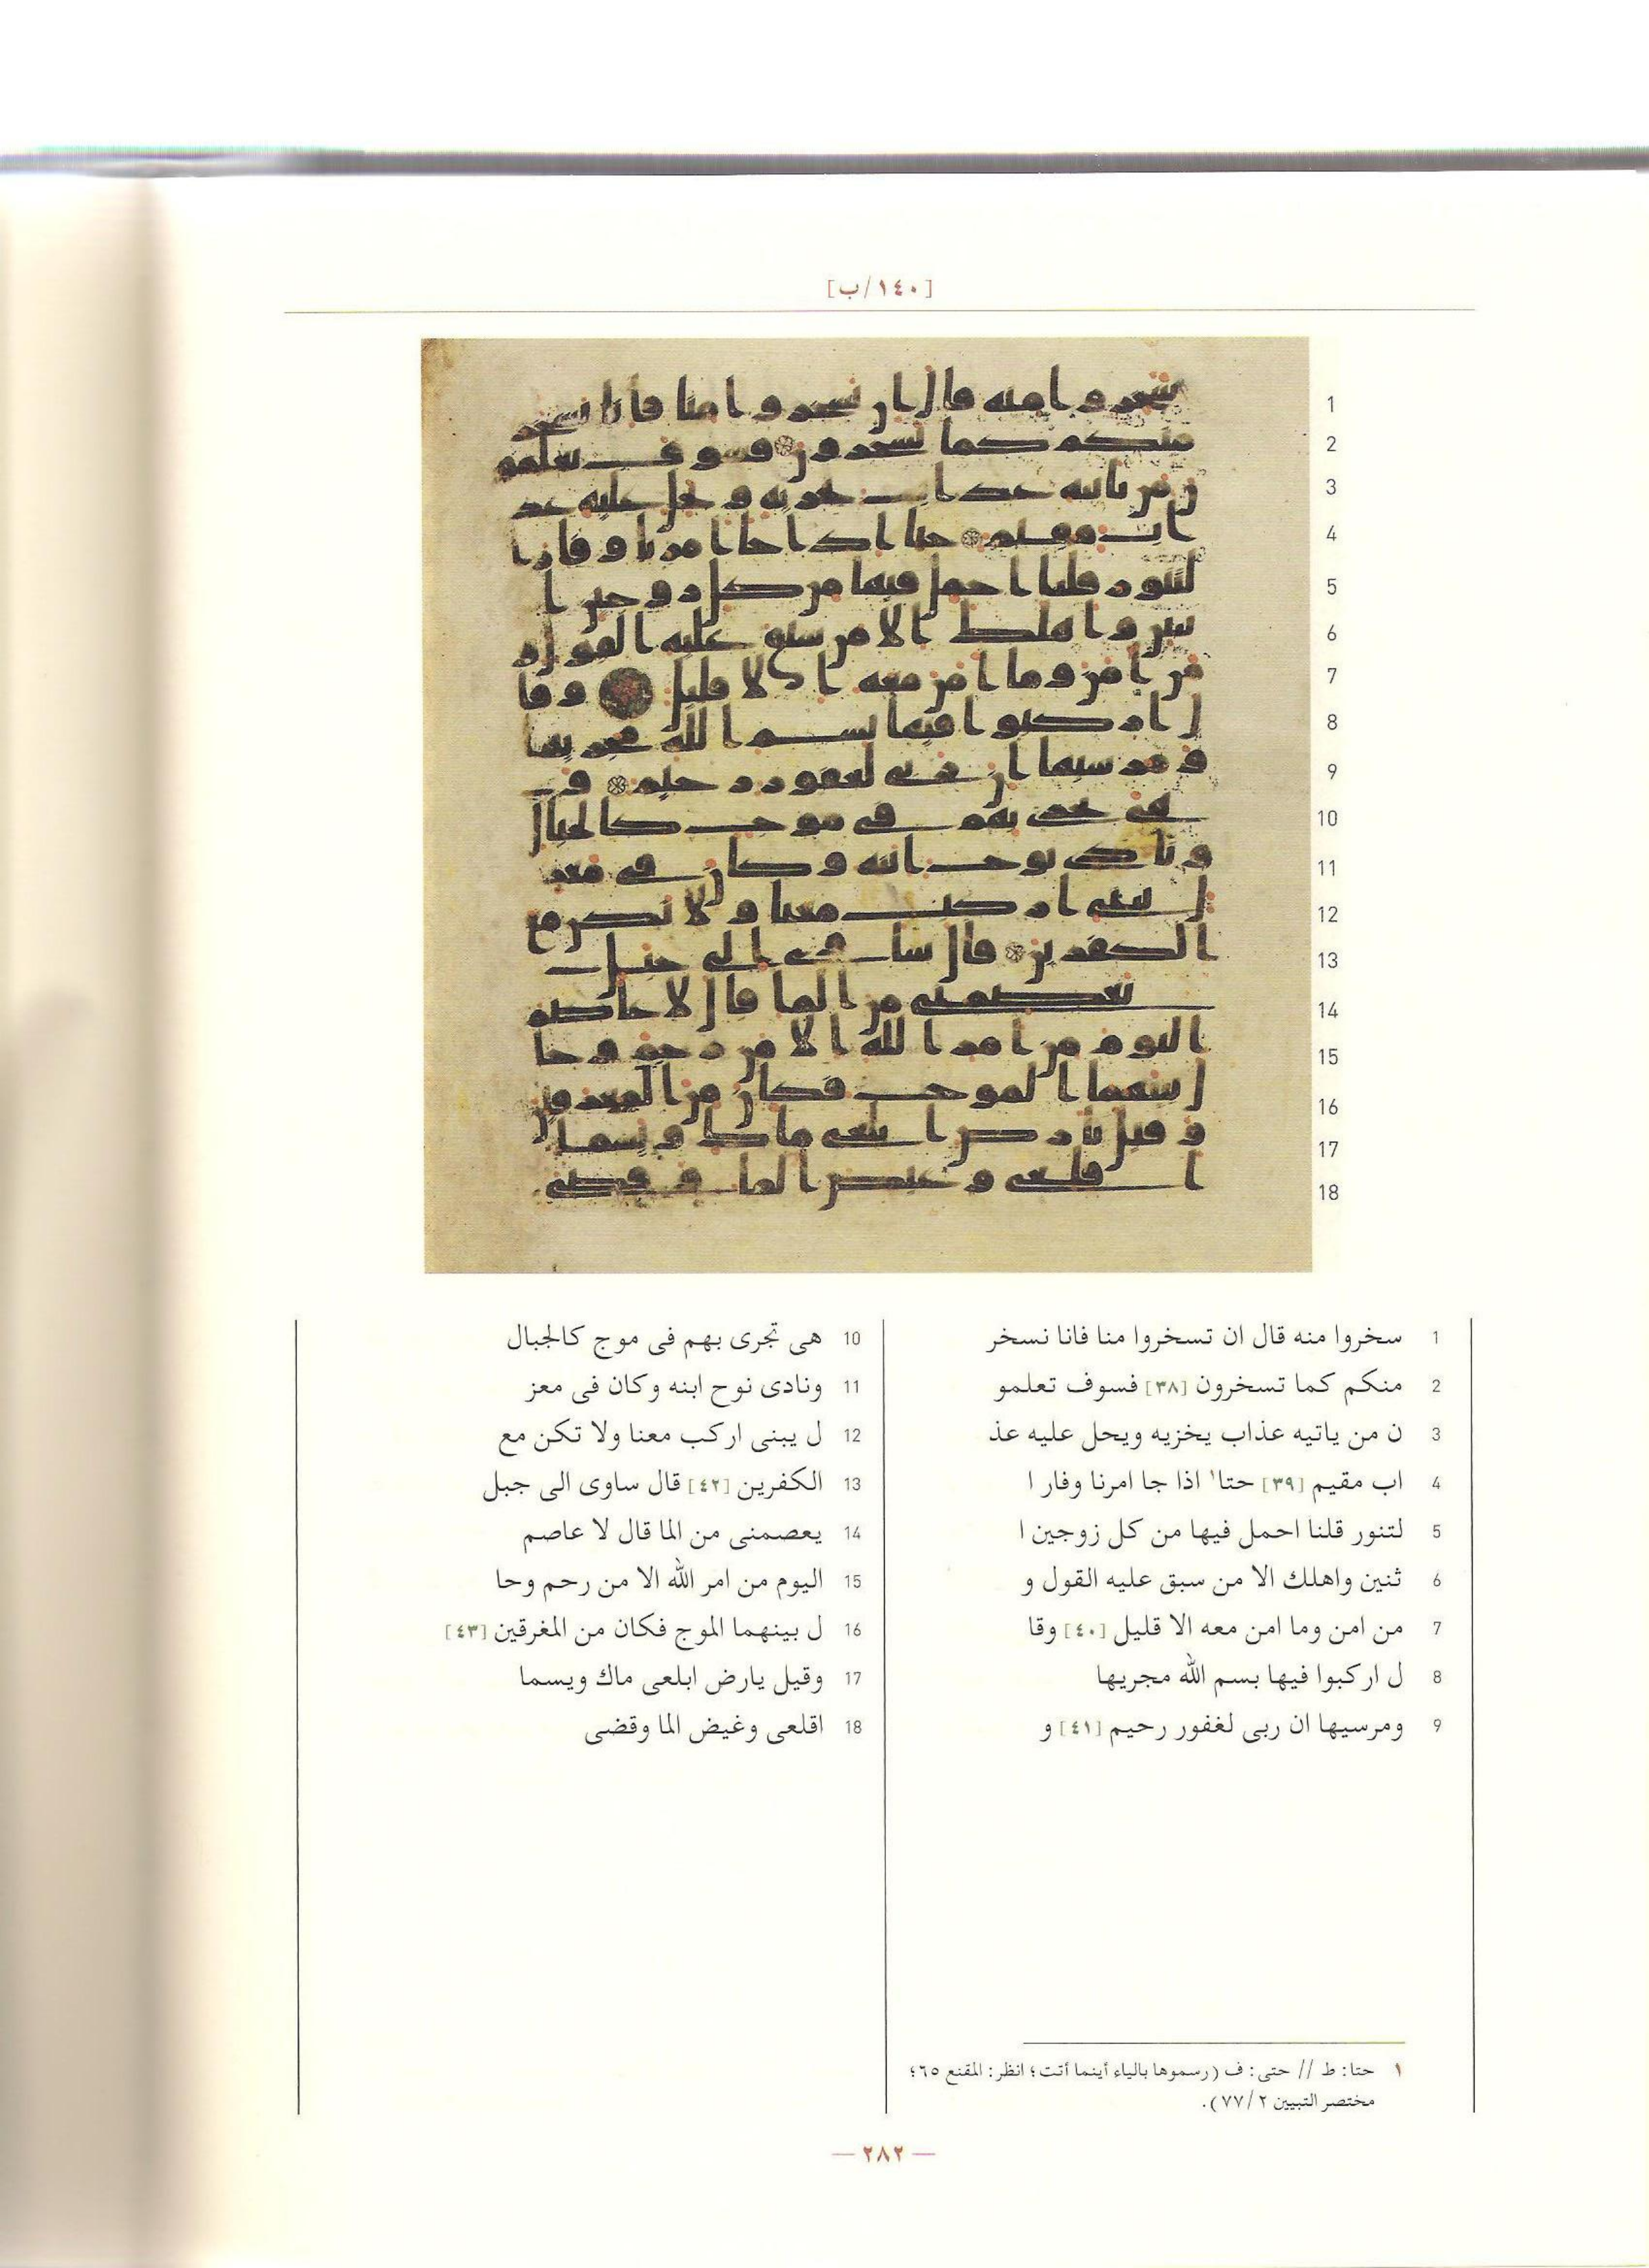 [١٤٠/ب]
1 سخروا منه قال ان تسخروا منا فانا نسخر
2 منكم كما تسخرون [٣٨] فسوف تعلمو
3 ن من ياتيه عذاب يخزيه ويحل عليه عذ
4 اب مقيم [٣٩] حتا١ اذا جا امرنا وفار ا
5 لتنور قلنا احمل فيها من كل زوجين ا
6 ثنين واهلك الا من سبق عليه القول و
7 من امن وما امن معه الا قليل [٤٠] وقا
8 ل اركبوا فيها بسم الله مجريها
9 ومرسيها ان ربى لغفور رحيم [٤١] و
10 هى تجرى بهم فى موج كالجبال
11 ونادى نوح ابنه وكان فى معز
12 ل يبنى اركب معنا ولا تكن مع
13 الكفرين [٤٢] قال ساوى الى جبل
14 يعصمنى من الما قال لا عاصم
15 اليوم من امر الله الا من رحم وحا
16 ل بينهما الموج فكان من المغرقين [٤٣]
17 وقيل يارض ابلعى ماك ويسما
18 اقلعى وغيض الما وقضى
١ حتا: ط // حتى: ف (رسموها بالياء أينما أتت؛ انظر: المقنع ٦٥؛
مختصر التبيين ٧٧/٢).
— ٢٨٢ —